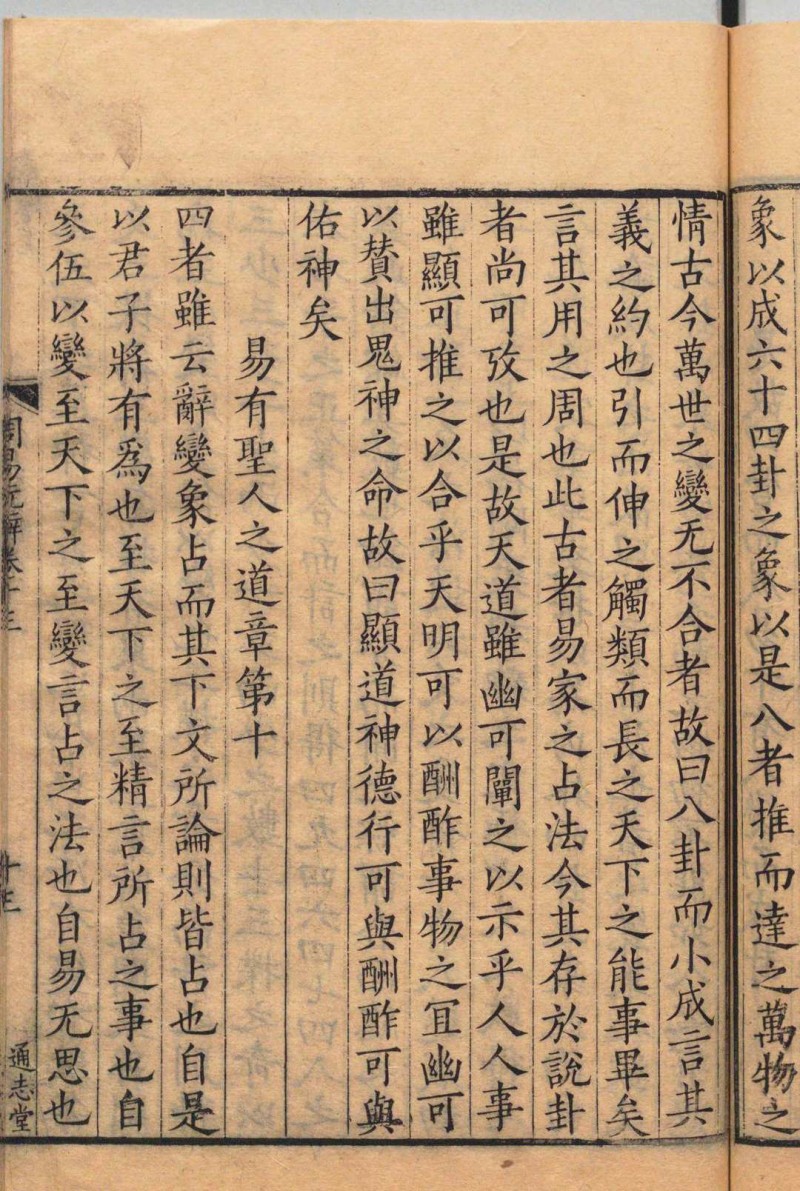 象以成六十四卦之象以是八者推而達之萬物之
情古今萬世之變无不合者故曰八卦而小成言其
義之約也引而伸之觸類而長之天下之能事畢矣
言其用之周也此古者易家之占法今其存於說卦
者尚可攷也是故天道雖幽可闡之以示乎人人事
雖顯可推之以合乎天明可以酬酢事物之冝幽可
以賛出鬼神之命故曰顯道神德行可與酬酢可與
佑神矣
易有聖人之道章第十
四者雖云辭變象占而其下文所論則皆占也自是
以君子將有爲也至天下之至精言所占之事也自
參伍以變至天下之至變言占之法也自易无思也
通志堂